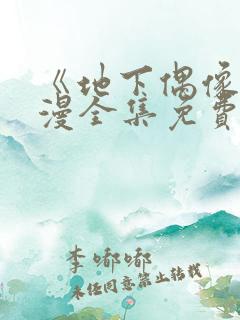 《地下偶像
漫全集免费
李嘟嘟
未经同意禁止转载